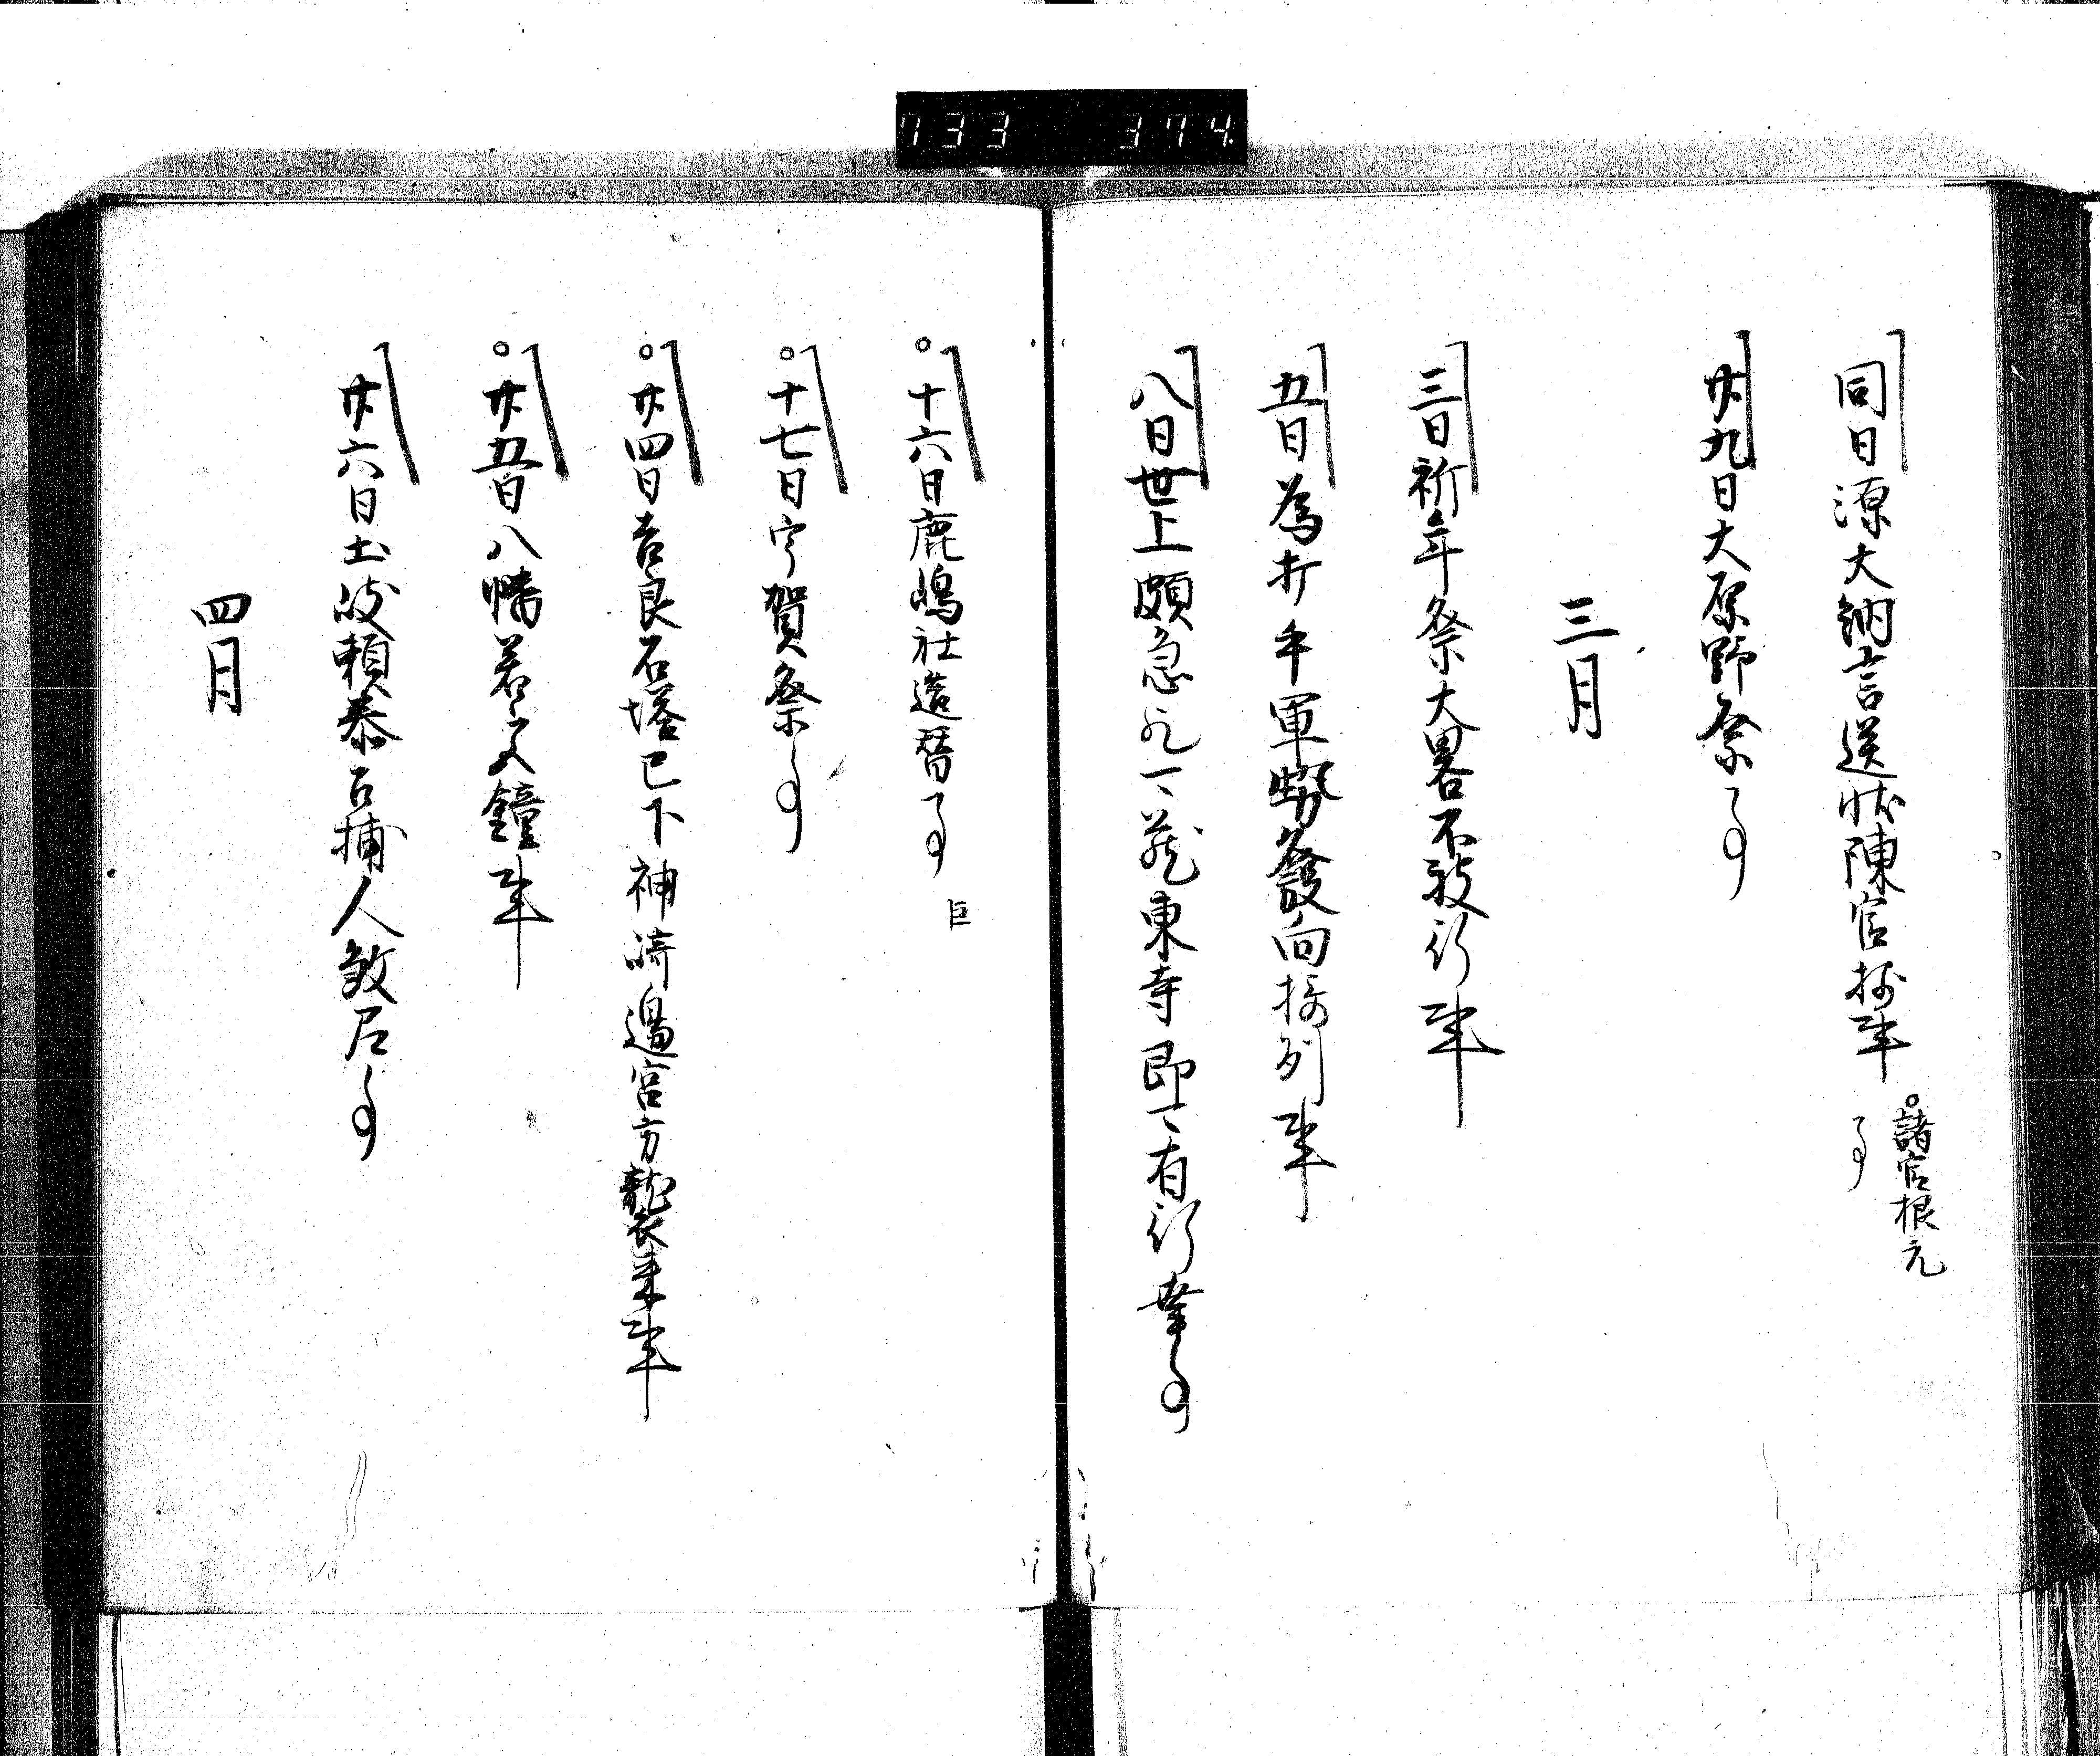 733 374
同日源大納言送状陳官挍畢
事
諸官根元
廿九日大原野祭事
三月
三日祈年祭大畧不被行畢
五日為打手軍勢發向摂列畢
八日世上頗急 東寺即可有行幸事
十六日鹿嶋社造替事
巨
十七日宇賀祭事
廿四日吉良石塔已下神崎邊宮方襲来畢
廿五日八幡若宮鐘畢
廿六日土岐頼泰召捕人敵后事
四月